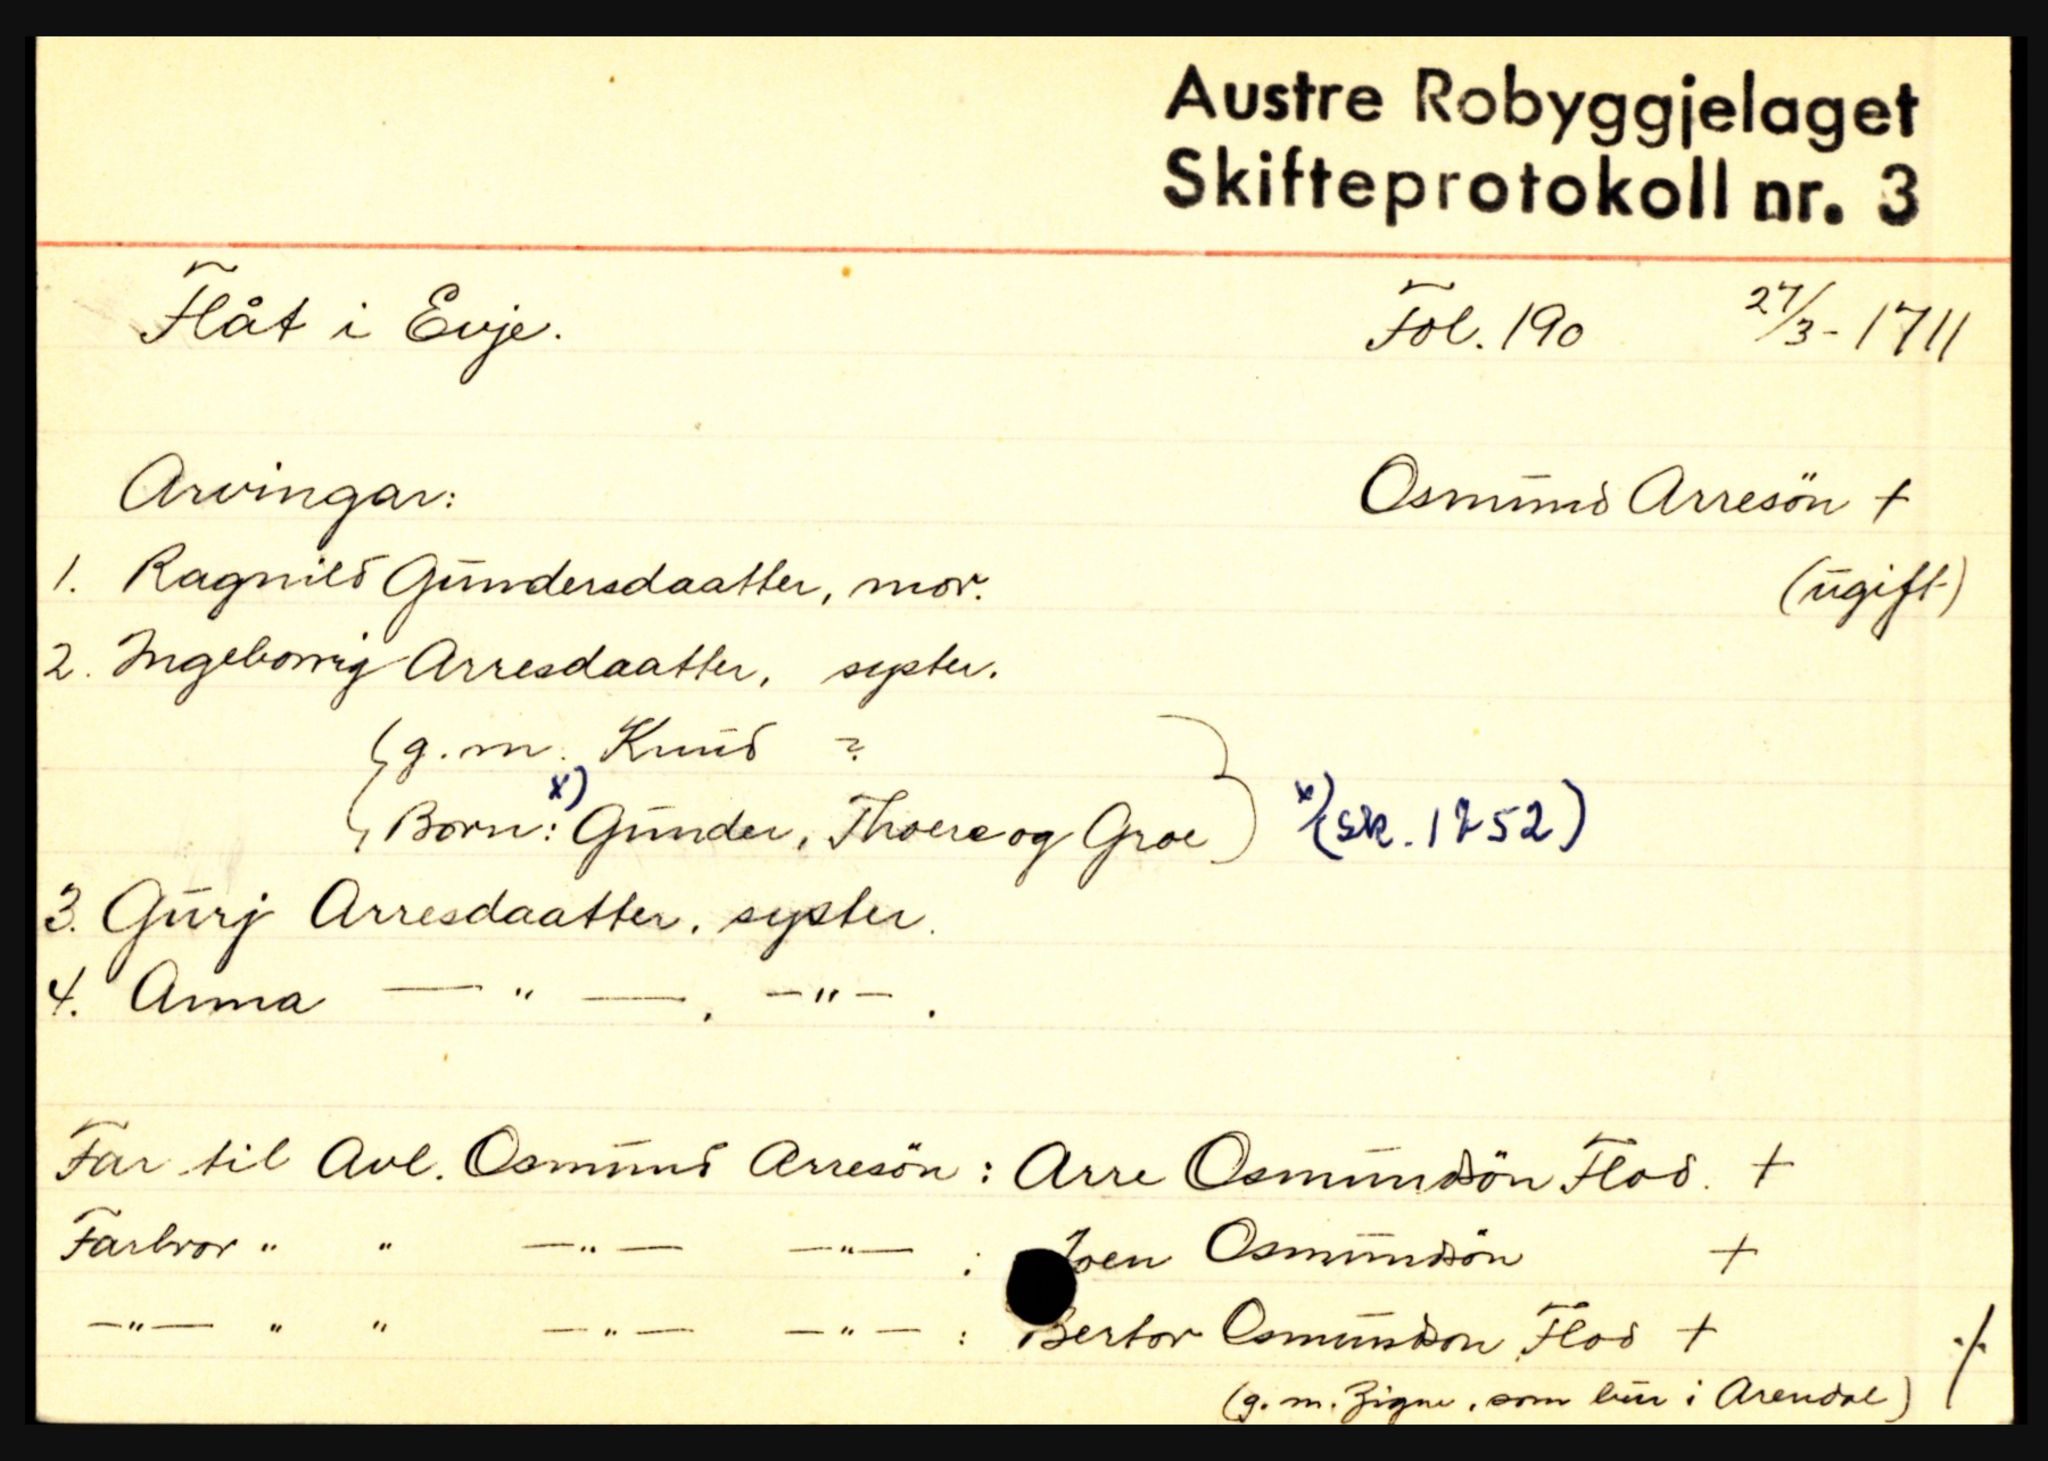 Austre Robyggjelaget
Skifteprotokoll nr. 3
Flåt i Evje. Fol. 190 27/3-1711
Arvingar: Osmund Arresön +
1. Ragnild Gundersdaatter, mor. (ugift)
2. Ingeborrig Arresdaatter, syster.
(g.m. Knud ?
Born: x) Gunder, Thoere og Groe) x) (sk. 1752)
3. Gurj Arresdaatter, syster.
4. Anna — " —, — " —.
Far til Avl. Osmund Arresön: Arre Osmundsön Flod. +
Farbror " " — " — — " — : Joen Osmundsön +
— " — " " — " — — " — : Bertor Osmundson Flod +
(g.m. Zigne, som bur i Arendal) ./.